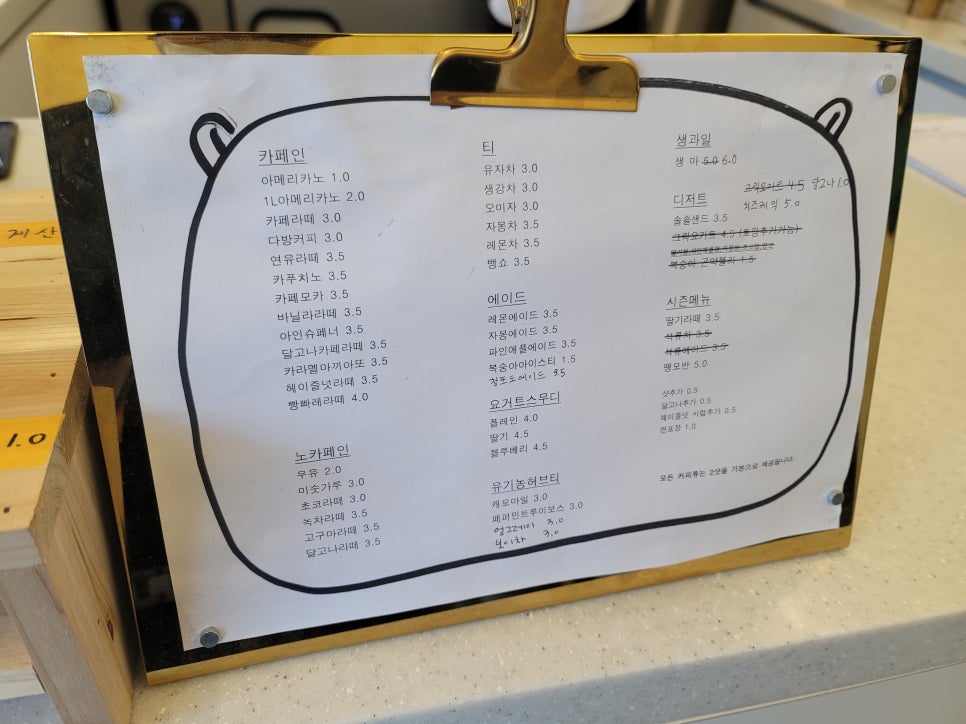 카페인
아메리카노 1.0
1L아메리카노 2.0
카페라떼 3.0
다방커피 3.0
연유라떼 3.5
카푸치노 3.5
카페모카 3.5
바닐라라떼 3.5
아인슈페너 3.5
달고나카페라떼 3.5
카라멜마끼아또 3.5
헤이즐넛라떼 3.5
빵빠레라떼 4.0
노카페인
우유 2.0
미숫가루 3.0
초코라떼 3.0
녹차라떼 3.5
고구마라떼 3.5
달고나라떼 3.5
티
유자차 3.0
생강차 3.0
오미자 3.0
자몽차 3.5
레몬차 3.5
뱅쇼 3.5
에이드
레몬에이드 3.5
자몽에이드 3.5
파인애플에이드 3.5
복숭아아이스티 1.5
청포도에이드 3.5
요거트스무디
플레인 4.0
딸기 4.5
블루베리 4.5
유기농허브티
캐모마일 3.0
페퍼민트루이보스 3.0
얼그레이 3.0
보이차 3.0
생과일
생 마 5.0 6.0
디저트
그릭요거트 4.5 달고나 1.0
치즈케익 5.0
솔솔샌드 3.5
그릭요거트 4.5 (토핑추가가능)
복숭아 곤약젤리 1.5
시즌메뉴
딸기라떼 3.5
석류차 3.5
석류에이드 3.5
땡모반 5.0
샷추가 0.5
달고나추가 0.5
헤이즐넛 시럽추가 0.5
캔포장 1.0
모든 커피류는 2샷을 기본으로 제공됩니다.
제 산
1.0